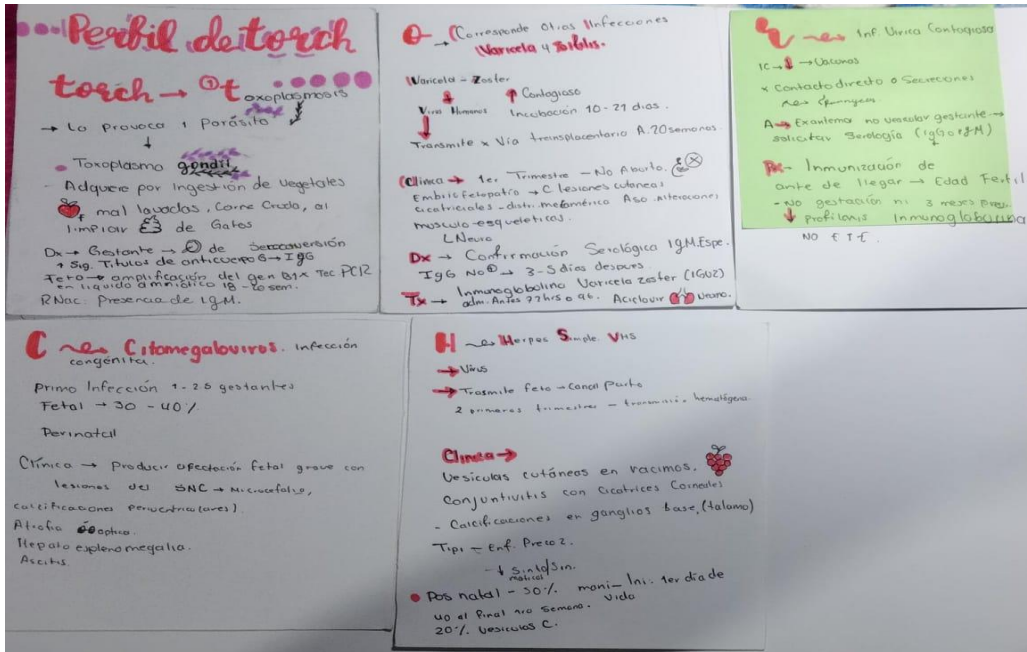 Perfil de torch
torch → ① toxoplasmosis
→ Lo Provoca 1 Parásito
↓
Toxoplasmo gondii
- Adquiere por Ingestión de vegetales
mal lavadas, Carne Cruda, al
limpiar de Gatos
Dx → Gestante → de Seroconversión
↑ Sig. Titulos de anticuerpo G → IgG
Feto → amplificación del gen B1 x Tec PCR
en líquido amniótico 18 - 20 sem.
R Nac: Presencia de IgM.
O → Corresponde Otras Infecciones
Varicela y Sifilis.
Varicela - Zoster
↑ Contagioso
Virus Humanos Incubación 10-21 dias.
Transmite x Vía transplacentaria A. 20 semanas.
Clinica → 1er. Trimestre - No Aborto.
Embrio fetopatía → C lesiones cutaneas
cicatriciales - distri. metamérica Aso. Alteraciones
musculo-esqueleticas.
L Neuro
Dx → Confirmación Serológica IgM. Espe.
IgG No → 3-5 días despues.
Tx → Inmunoglobulina Varicela zoster (IGVZ)
adm. Antes 72hrs o 96. Aciclovir
Inf. Virica Contagiosa
IC → ↓ → Vacunas
x Contacto directo o Secreciones
A → Exantema no vesicular gestante →
solicitar Serología (IgG o IgM)
Px - Inmunización de
ante de llegar → Edad Fertil
- No gestación ni 3 meses prev.
↓ profilaxis Inmunoglobulina
NO
C Citomegalovirus. Infección
congénita.
Primo Infección 1-2.5 gestantes
Fetal → 30 - 40%
Perinatal
Clínica → Producir afectación fetal grave con
lesiones del SNC → Microcefalia,
calcificaciones periventriculares)
Atrofia optica.
Hepatoesplenomegalia.
Ascitis.
H Herpes Simple. VHS
→ Virus
→ Trasmite feto → Canal Parto
2 primeros trimestres - transmisión hematógena.
Clinica →
Vesiculas cutáneos en racimos.
Conjuntivitis con Cicatrices Corneales
- Calcificaciones en ganglios base, (talamo)
Tipi = Enf. Precoz.
- ↓
Pos natal - 50% mani- Ini. 1er dia de
vida
40 al final 1ra Semana.
20% Vesiculas C.